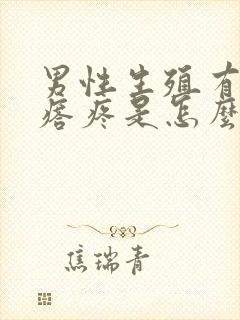 男性生殖有
痞疼是怎麼
焦瑞青